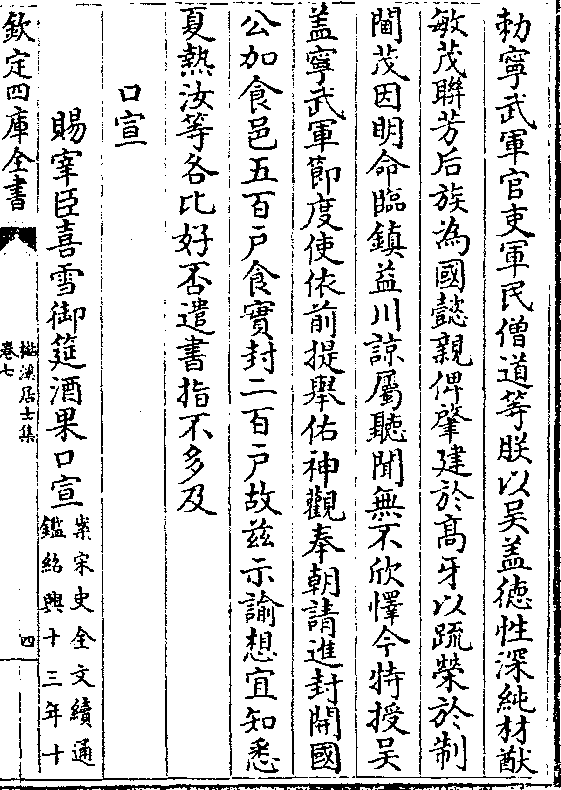 勅寧武軍官吏軍民僧道等朕以吴盖徳性深純材猷
敏茂聨芳后族為國懿親俾肇建於髙牙以疏榮於制
閫茂因明命臨鎮益川諒屬聽聞無不欣懌今特授吴
盖寧武軍節度使依前提舉佑神觀奉朝請進封開國
公加食邑五百户食實封二百户故兹示諭想宜知悉
夏熱汝等各比好否遣書指不多及
口宣
賜宰臣喜雪御筵酒果口宣
案宋史全文續通
鑑紹興十三年十
欽定四庫全書
檆溪居士集
卷七
四